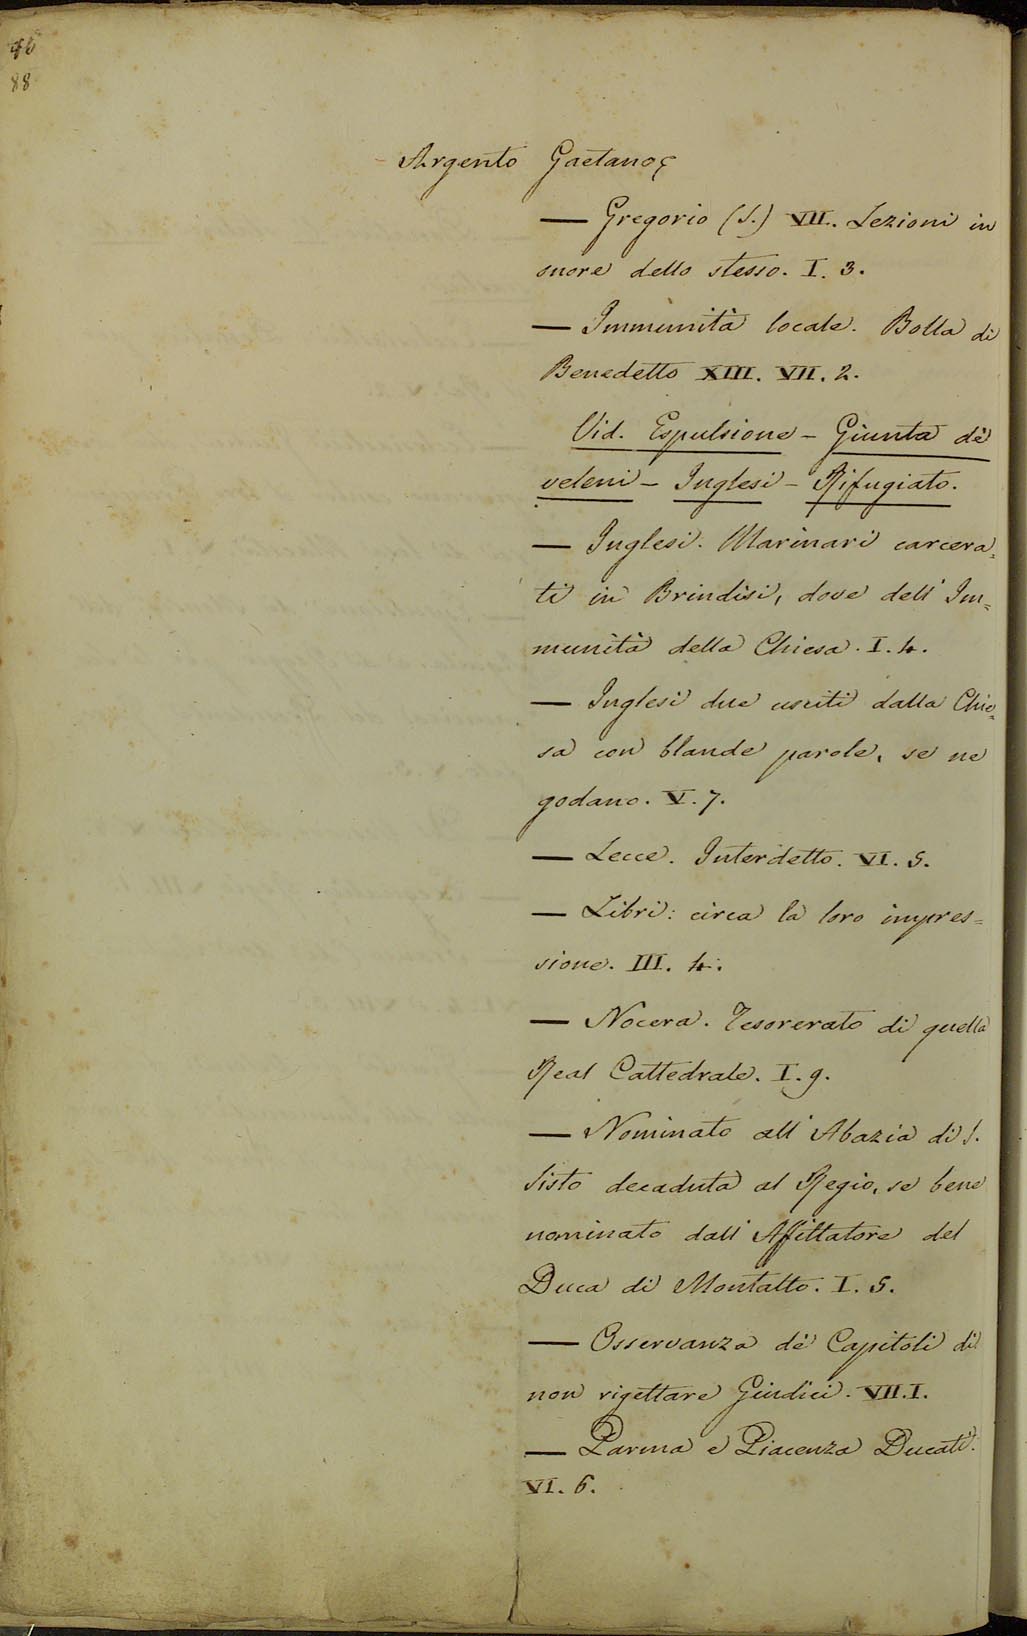 88
Argento Gaetano
— Gregorio (S.) VII. Lezioni in
onore dello stesso. I. 3.
— Immunità locale. Bolla di
Benedetto XIII. VII. 2.
Vid. Espulsione - Giunta de'
veleni - Inglesi - Rifugiato.
— Inglesi. Marinari carcera=
ti in Brindisi, dove dell' Im=
munità della Chiesa. I. 4.
— Inglesi due usciti dalla Chie=
sa con blande parole, se ne
godano. V. 7.
— Lecce. Interdetto. VI. 5.
— Libri: circa la loro impres=
sione. III. 4.
— Nocera. Tesorerato di quella
Real Cattedrale. I. 9.
— Nominato all' Abazia di S.
Sisto decaduta al Regio, se bene
nominato dall' Affittatore del
Duca di Montalto. I. 5.
— Osservanza de' Capitoli di
non rigettare Giudici. VII. I.
— Parma e Piacenza Ducati.
VI. 6.